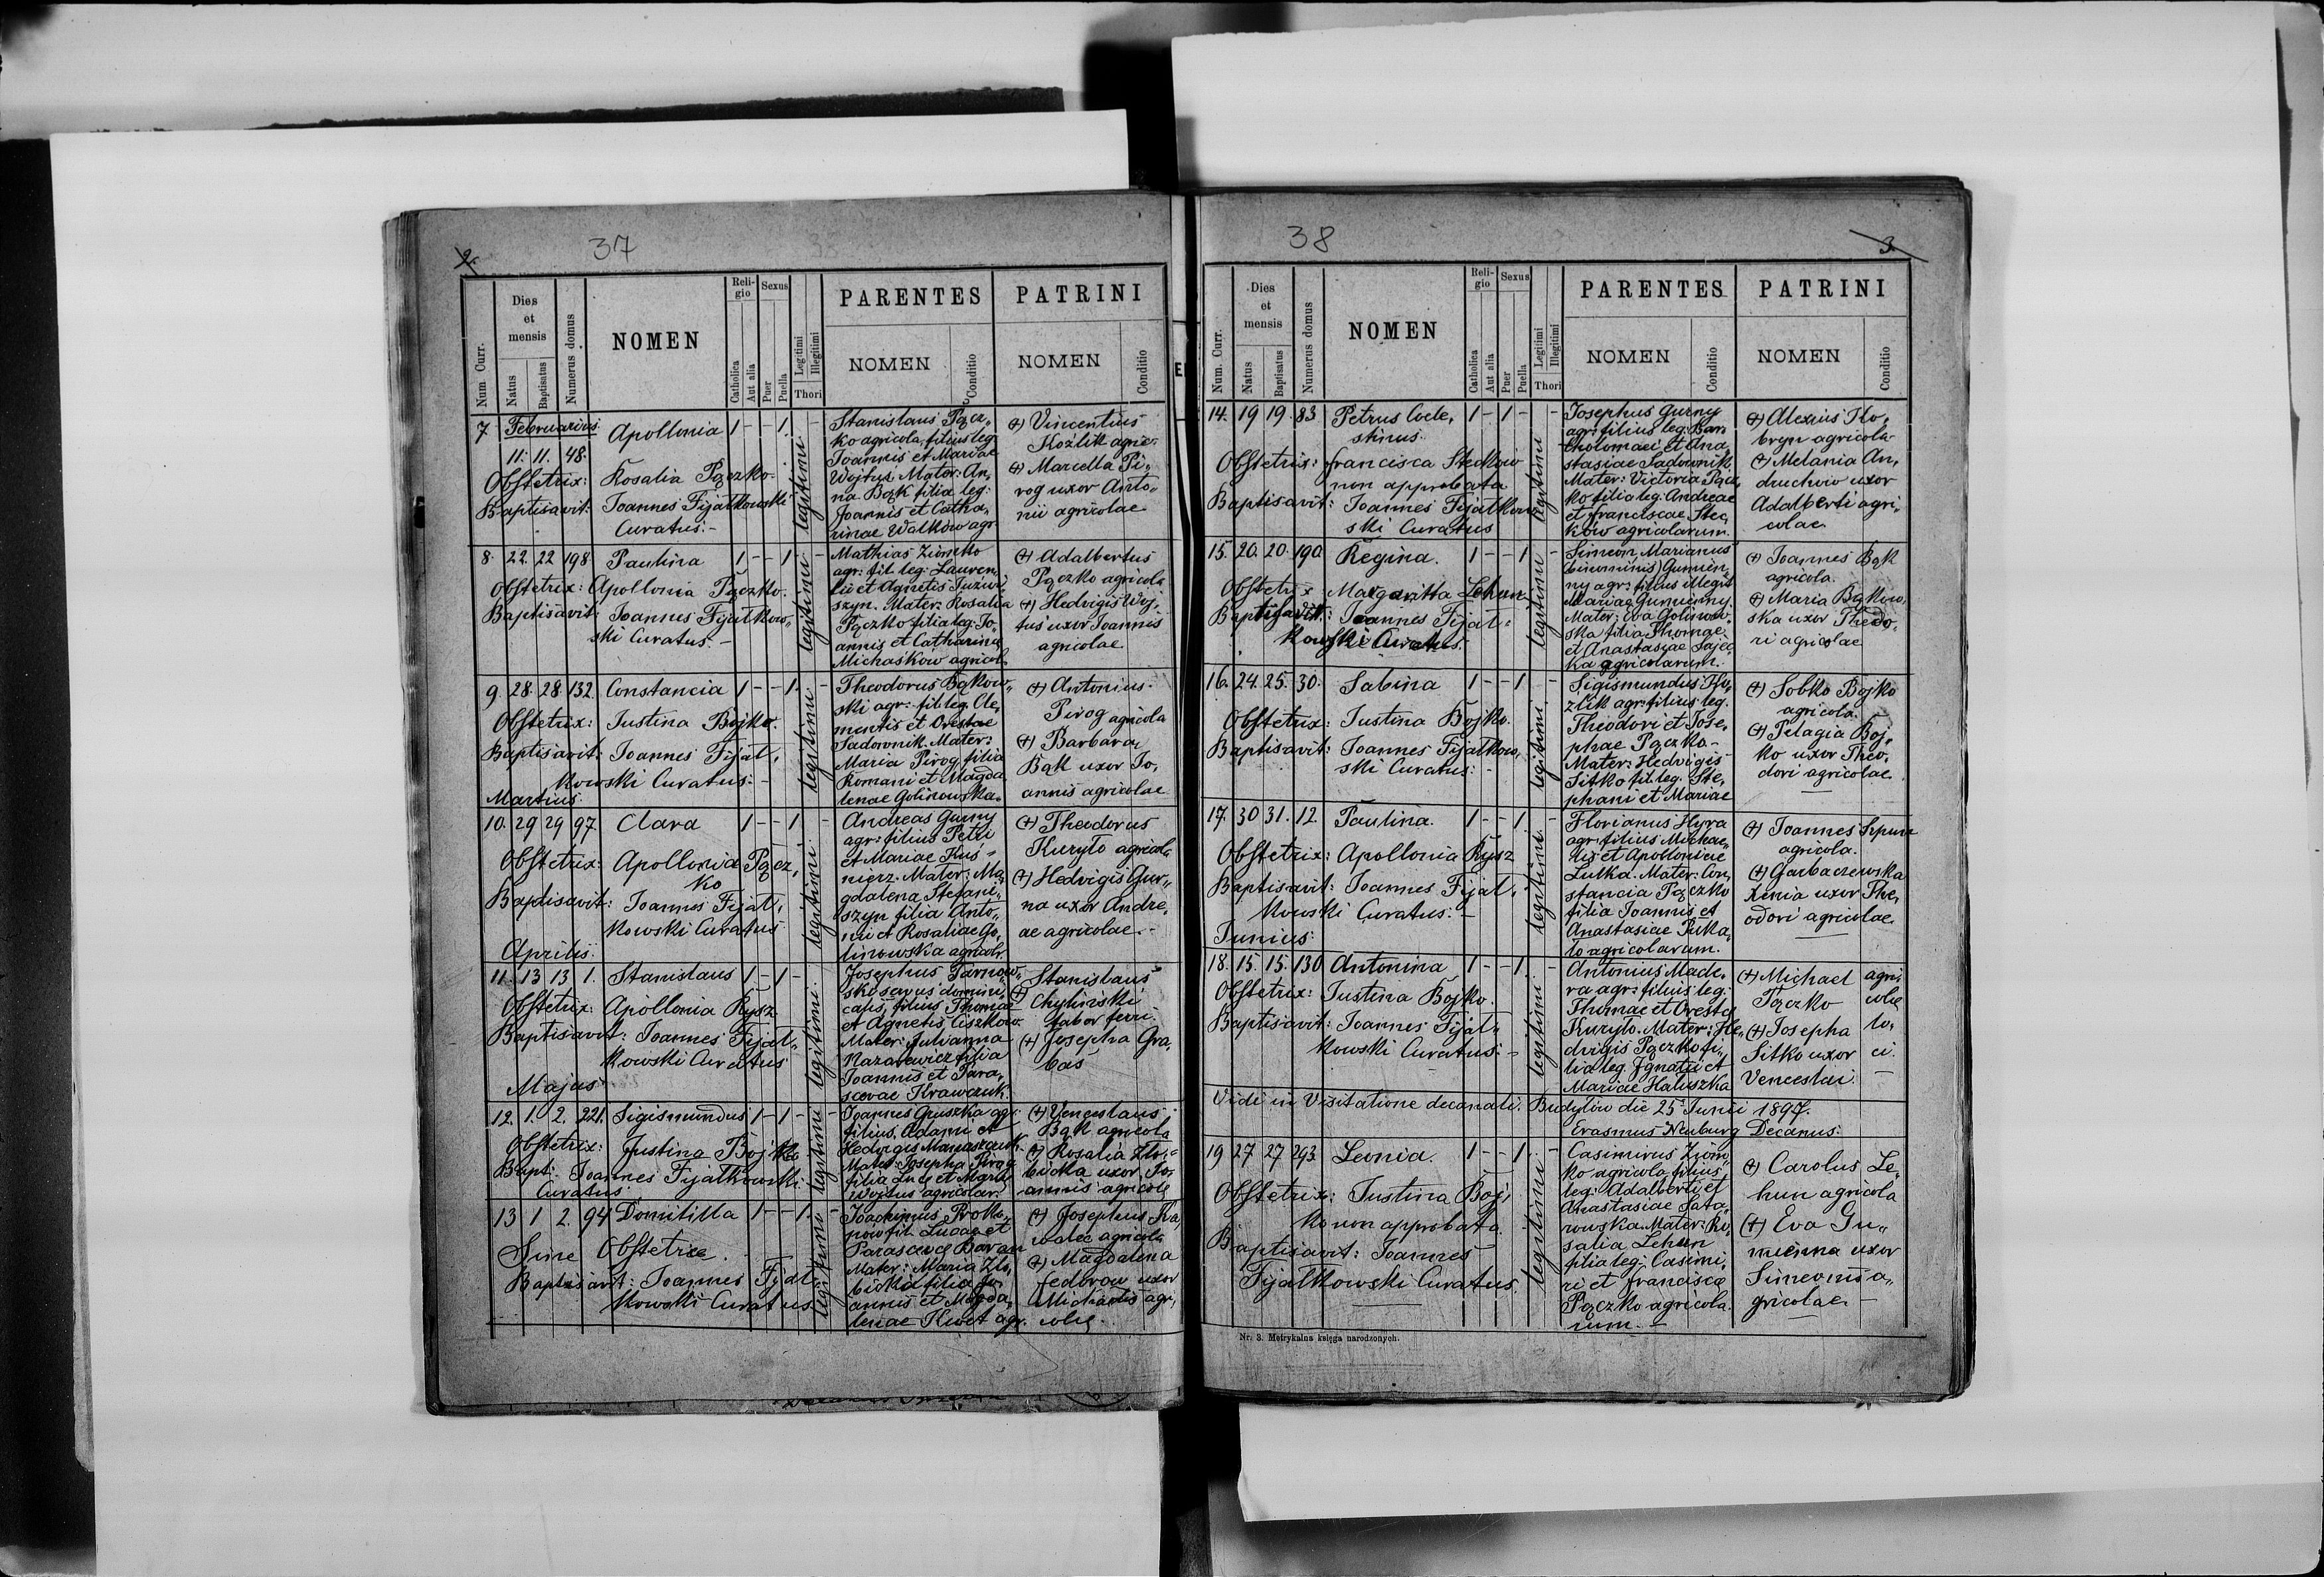 2.
37
Num Curr.
Dies et mensis
Natus
Baptisatus
Numerus domus
NOMEN
Religio
Catholica
Aut alia
Sexus
Puer
Puella
Legitimi
Illegitimi
Thori
PARENTES
NOMEN
Conditio
PATRINI
NOMEN
Conditio
7 Februarius
11. 11. 48.
Apollonia 1 - - 1.
Obstetrix: Rosalia Pączko.
Baptisavit: Joannes Fijałkowski
Curatus. -
legitimi
Stanislaus Pącz„
ko agricola, filius leg.
Joannis et Mariae
Wojtuś Mater: An„
na Bąk filia leg:
Joannis et Catha„
rinae Walków agr.
(+) Vincentius
Koźlik agric.
(+) Marcella Pi„
rog uxor Anto„
nii agricolae
8. 22. 22 198 Paulina 1 - - 1 -
Obstetrix: Apollonia Pączko.
Baptisavit: Joannes Fijałkow„
ski Curatus. -
legitimi
Mathias Ziomko
agr: fil. leg: Lauren„
tii et Agnetis
szyn. Mater: Rosalia
Pączko filia leg: Jo„
annis et Catharina
Michaśków agricol.
(+) Adalbertus
Pączko agricola
(+) Hedvigis Woj„
tuś uxor Joannis
agricolae
9. 28. 28. 132. Constancia 1 - - 1. -
Obstetrix: Justina Bojko.
Baptisavit: Joannes Fijał„
kowski Curatus. -
legitimi
Theodorus Bąkow„
ski agr: fil. leg. Cle„
mentis et Orestae
Sadownik. Mater:
Maria Pirog, filia
Romani et Magda
lenae Golinowska.
(+) Antonius
Pirog agricola
(+) Barbara
Bąk uxor Jo„
annis agricolae
Martius.
10. 29 29 97. Clara 1 - - 1 -
Obstetrix: Apollonia Pącz„
ko
Baptisavit: Joannes Fijał„
kowski Curatus
legitimi
Andreas Gurny
agr: filius Petri
et Mariae Kuś„
nierz. Mater: Ma„
gdalena Stefani„
szyn filia Anto„
nii et Rosaliae Go„
linowska agricolr.
(+) Theodorus
Kuryło agricola
(+) Hedvigis Gur„
na uxor Andre„
ae agricolae. -
Aprilis.
11. 13 13 1. Stanislaus 1 - 1 -
Obstetrix: Apollonia Rysz
Baptisavit: Joannes Fijał„
kowski Curatus
legitimi
Josephus Tarnow„
ski servus domini„
calis, filius Thomae
et Agnetis Ciszków.
Mater: Julianna
Nazarewicz filia
Joannis et Para„
scevae Krawczuk.
(+) Stanislaus
Chyliński
faber ferri.
(+) Josepha Gra„
bas
Majus
12. 1. 2. 221. Sigismundus 1 - 1 -
Obstetrix: Justina Bojko.
Bapt: Joannes Fijałkowski
Curatus
legitimi
Joannes Gruszka agr.
filius Adami et
Hedvigis Manaszczuk.
Mater: Josepha Pirog
filia Lucę et Mariae
Wojtuś agricolar.
(+) Venceslaus
Bąk agricola
(+) Rosalia Zło„
bicka uxor Jo„
annis agricolę
13 1 2. 94 Domitilla 1 - - 1.
Sine Obstetrice.
Baptisavit: Joannes Fijał„
kowski Curatus
legitimi
Joachimus Proko„
pow fil. Lucae et
Parascevę Baran
Mater: Maria Zło„
bicka filia Jo„
annis et Magda„
lenae Kwit agr.
(+) Josephus Ko„
walec agricola
(+) Magdalena
Fedorow uxor
Michaelis agri„
colę.
38
3.
Num. Curr.
Dies et mensis
Natus
Baptisatus
Numerus domus
NOMEN
Religio
Catholica
Aut alia
Sexus
Puer
Puella
Legitimi
Illegitimi
Thori
PARENTES
NOMEN
Conditio
PATRINI
NOMEN
Conditio
14. 19 19. 83 Petrus Coele„ 1 - 1 - -
stinus.
Obstetrix: Francisca Steckow
non approbata
Baptisavit: Joannes Fijałkow„
ski Curatus
legitimi
Josephus Gurny
agr: filius leg: Bar„
tholomaei et Ana„
stasiae Sadownik.
Mater: Victoria Pącz„
ko filia leg: Andreae
et Franciscae Stec„
ków agricolarum.
(+) Alexius Ko„
bryn agricola
(+) Melania An„
druchów uxor
Adalberti agri„
colae.
15. 20. 20. 190. Regina. 1 - - 1 -
Obstetrix Margaritta Lehun
Baptisavit: Joannes Fijał„
kowski Curatus.
legitimi
Simeon Marianus
(binominis) Gumien„
ny agr: filius illegit
Mariae Gumienny.
Mater: Eva Golinow„
ska filia Thomae
et Anastasiae Zajec„
ka agricolarum.
(+) Joannes Bąk
agricola.
(+) Maria Bąkow„
ska uxor Theo„
ri agricolae
16. 24. 25. 30. Sabina 1 - - 1 -
Obstetrix: Justina Bojko.
Baptisavit: Joannes Fijałkow„
ski Curatus: -
legitimi
Sigismundus Ko„
źlik agr: filius leg.
Theodori et Jose„
phae Pączko -
Mater: Hedvigis
Sitko fil. leg. Ste„
phani et Mariae
(+) Sobko Bojko
agricola.
(+) Pelagia Boj„
ko uxor Theo„
dori agricolae.
17. 30 31. 12. Paulina. 1 - - 1 -
Obstetrix: Apollonia Rysz
Baptisavit: Joannes Fijał„
kowski Curatus: -
legitimi
Florianus Hyra
agr: filius Michae„
lis et Apolloniae
Lutka. Mater: Con„
stancia Pączko
filia Joannis et
Anastasiae Puka„
ło agricolarum.
(+) Joannes Szpun
agricola.
(+) Garbaczewska
Xenia uxor The„
odori agricolae.
Junius:
18. 15. 15. 130 Antonina 1 - - 1. -
Obstetrix: Justina Bojko.
Baptisavit: Joannes Fijał„
kowski Curatus: -
legitimi
Antonius Made„
ra agr: filius leg:
Thomae et Orestę
Kuryło. Mater: He„
dvigis Pączko fi„
lia leg. Ignatii et
Mariae Haluszka
(+) Michael agri„
Pączko colae
(+) Josepha
Sitko uxor
Venceslai.
Vidi in Visitatione decanali. Budyłów die 25 Junii 1897.
Erasmus Neuburg Decanus.
19 27 27 293. Leonia. 1 - - 1. -
Obstetrix: Justina Boj„
ko non approbata
Baptisavit: Joannes
Fijałkowski Curatus.
legitimi
Casimirus Ziom„
ko agricola, filius
leg: Adalberti et
Anastasiae Sata„
nowska. Mater: Ro„
salia Lehun
filia leg: Casimi„
ri et Franciscę
Pączko agricola„
rum. -
(+) Carolus Le„
hun agricola
(+) Eva Gu„
mienna uxor
Simeonis a„
gricolae. -
Nr. 3. Metrykalna księga narodzonych.